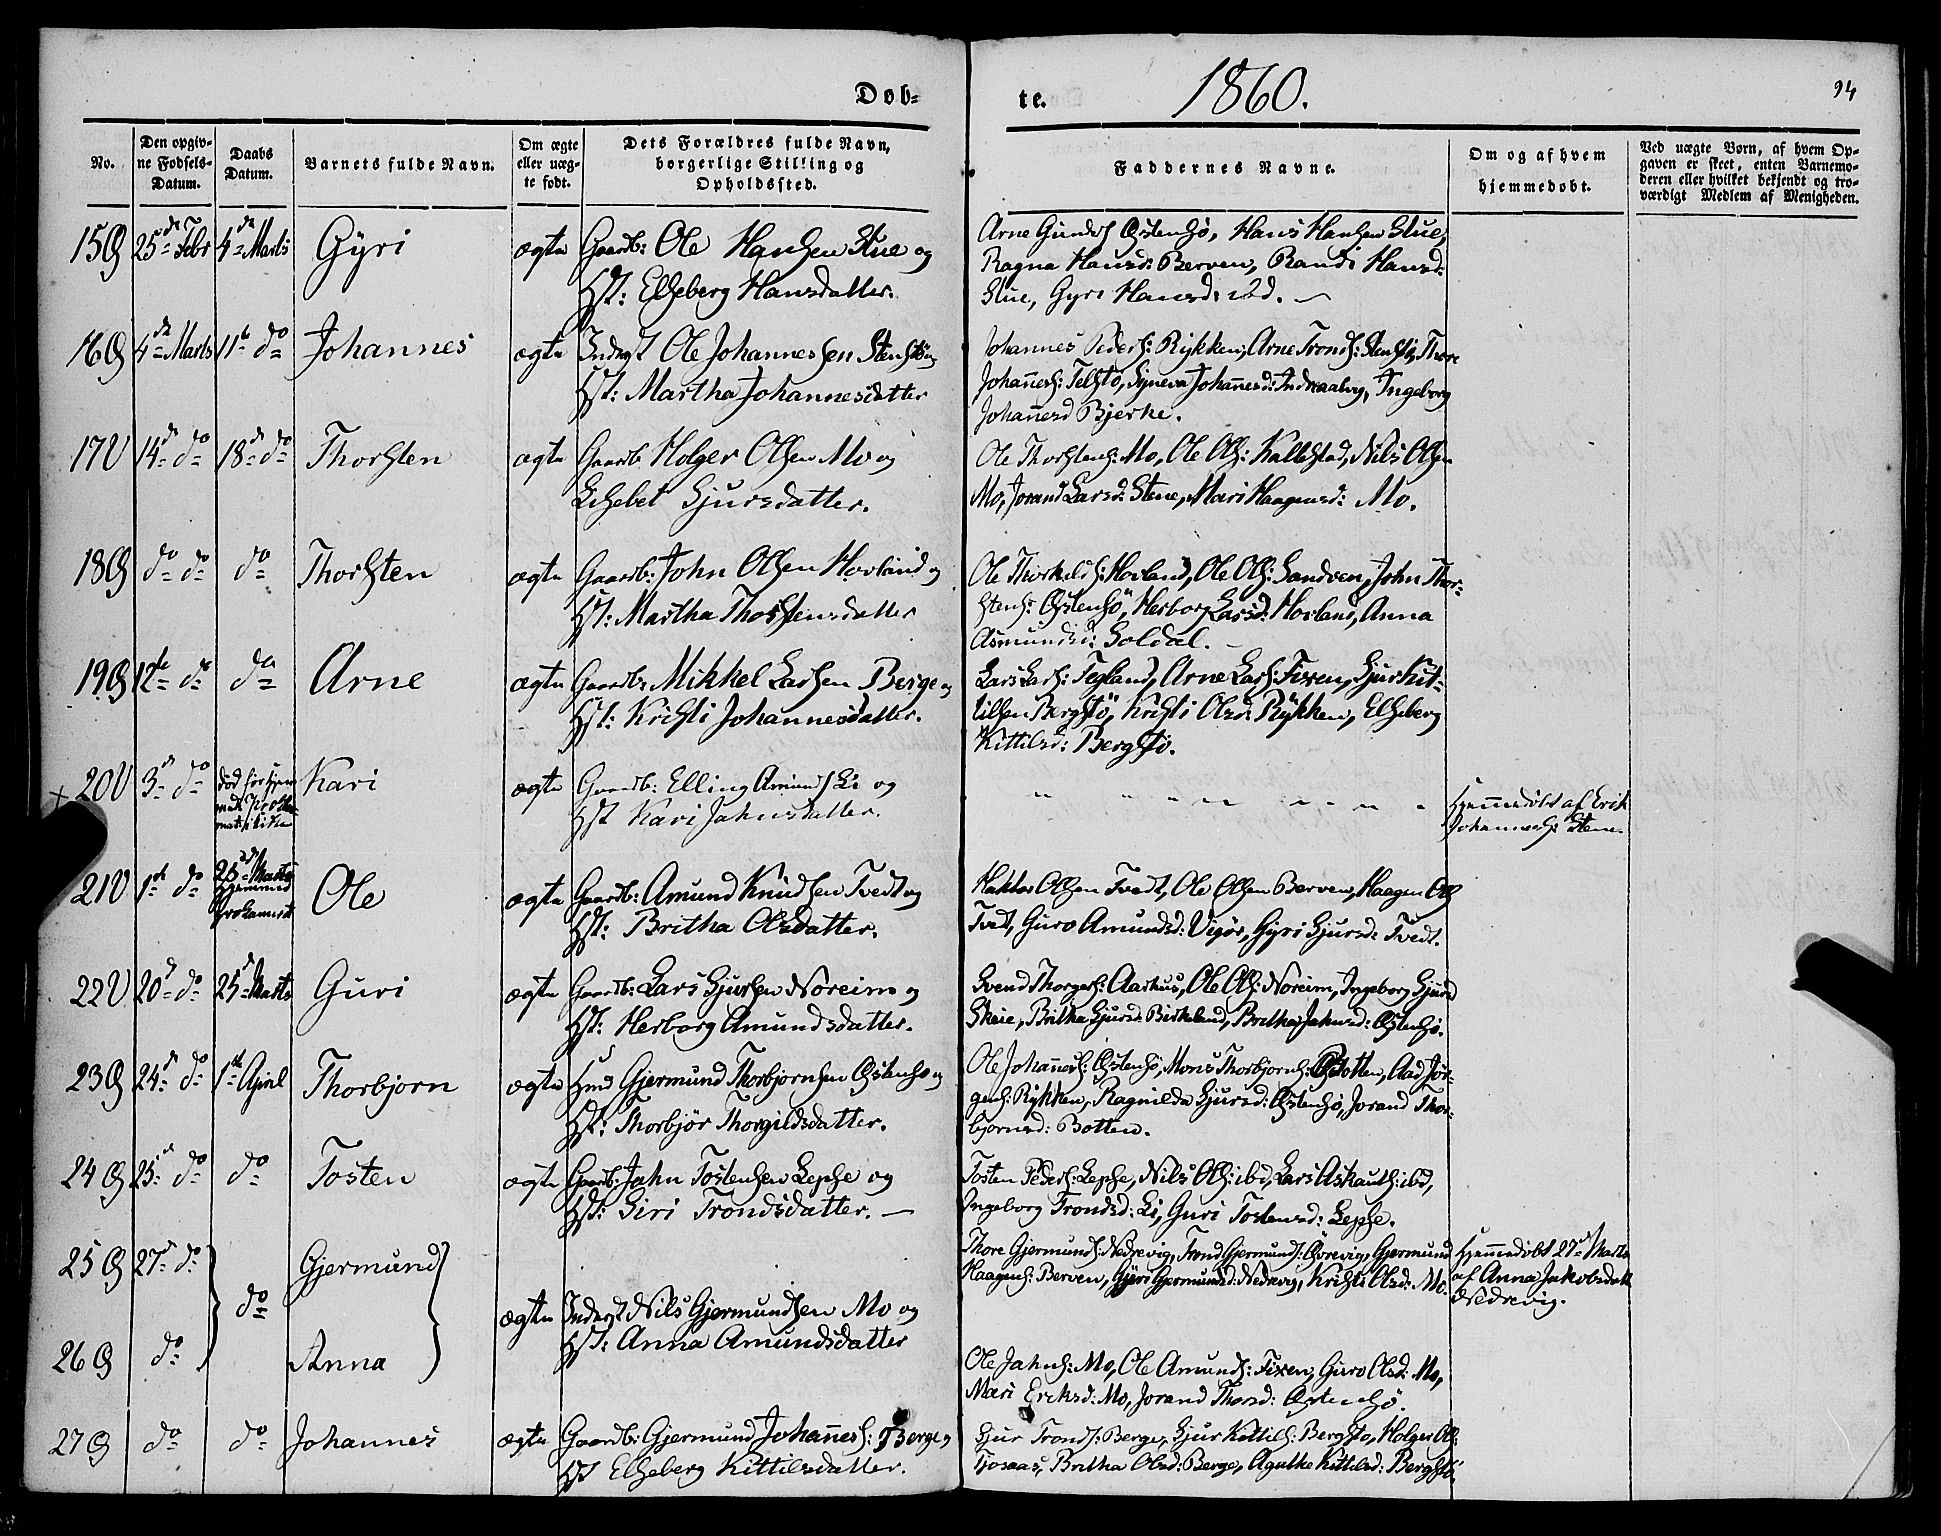 Døb-
te.
1860.
94
No.
Den opgiv-
ne Fødsels-
Datum.
Daabs
Datum.
Barnets fulde Navn.
Om ægte
eller uæg-
te født.
Dets Forældres fulde Navn,
borgerlige Stilling og
Opholdssted.
Faddernes Navne.
Om og af hvem
hjemmedøbt.
Ved uægte Børn, af hvem Op-
gaven er skeet, enten Barnemo-
deren eller hvilket bekjendt og tro-
værdigt Medlem af Menigheden.
15 Ø 25de Febr 4de Marts Gyri ægte Gaardb: Ole Hansen Stue og
Hst: Elseberg Hansdatter.
Arne Gunds Østensø, Hans Hansen Stue,
Ragna Hansd: Berven, Randi Hansd:
Stue, Gyri Hansd: ibd.
16 Ø 4de Marts 11te do Johannes ægte Inderst Ole Johannessen Stenstø og
Hst: Martha Johannesdatter
Johannes Peders: Rykken, Arne Tronds: Stenstø, Thore
Johañes: Telstø, Synneva Johañesd: Indreaalvig, Ingeborg
Johañesd Bjerke.
17 U 14de do 18de do Thorsten ægte Gaardb Holger Olsen Mo og
Lisebet Sjursdatter.
Ole Thorstens: Mo, Ole Ols: Kallestad, Nils Olsen
Mo, Jorand Larsd: Stene, Mari Haagensd: Mo.
18 Ø do do do Thorsten ægte Gaardb: John Olsen Hovland og
Hst: Martha Thorstensdatter
Ole Thorkilds: Hovland, Ole Ols: Sandven, John Thor-
stens: Østensø, Herborg Larsd: Hovland, Anna
Asmundsd: Soldal.
19 Ø 12te do do Arne ægte Gaardb: Mikkel Larsen Berge og
Hst: Kristi Johannesdatter.
Lars Lars: Tegland, Arne Lars: Fixen, Sjur Kit-
tilsen Bergstø, Kristi Olsd: Rykken, Elseberg
Kittilsd: Bergstø.
+ 20 U 3de do død før hjem Kari ægte Gaardb: Elling Amunds Li og
Hst Kari Jahnsdatter.
Hjemmedøbt af Erik
Johannes: Stene.
21 U 1ste do 25de Marts Ole ægte Gaardb: Amund Knudsen Tvedt og
Hst: Britha Olsdatter.
Haktor Olsen Tvedt, Ole Olsen Berven, Haagen Ols
Tvedt, Guro Amundsd: Vigør, Gyri Sjursd: Tvedt.
22 U 20de do 25de Marts Guri ægte Gaardb: Lars Sjursen Noreim og
Hst: Herborg Amundsdatter.
Svend Thorgers: Aarhus, Ole Ols: Noreim, Ingeborg Sjursd
Skeie, Britha Sjursd: Birkeland, Britha Jahnsd: Østensø.
23 Ø 24de do 1ste April Thorbjørn ægte Hmd Gjermund Thorbjørnsen Østensø og
Hst: Thorbjør Thorgildsdatter.
Ole Johañes: Østensø, Mons Thorbjørns: Botten, Aad Jør-
gens: Rykken, Ragnilda Sjursd: Østensø, Jorand Thor-
bjørnsd: Botten.
24 Ø 25de do do Tosten ægte Gaardb: Jahn Tostensen Lepse og
Hst: Siri Trondsdatter.
Tosten Peders: Lepse, Nils Ols: ibd, Lars Askauts: ibd,
Ingeborg Trondsd: Li, Guri Tostensd: Lepse.
25 Ø 27de do do Gjermund ægte Inderst Nils Gjermundsen Mo og
Hst: Anna Amundsdatter
Thore Gjermunds: Nedrevig, Trond Gjermunds: Øvrevig, Gjermund
Haagens: Berven, Gyri Gjermundsd: Nedrevig, Kristi Olsd: Mo.
Hjemmedøbt 27de Marts
af Anna Jakobsdatt
Nedrevig.
26 Ø do Anna
Ole Jahns: Mo, Ole Amunds: Fixen, Guro Olsd: Mo,
Mari Eriksd: Mo, Jorand Thorsd: Østensø.
27 Ø do do Johannes ægte Gaardb: Gjermund Johañes: Berge og
Hst Elseberg Kittilsdatter.
Sjur Tronds: Berge, Sjur Kittils: Bergstø, Holger Ols:
Tjosaas, Britha Olsd: Berge, Agathe Kittilsd: Bergstø.